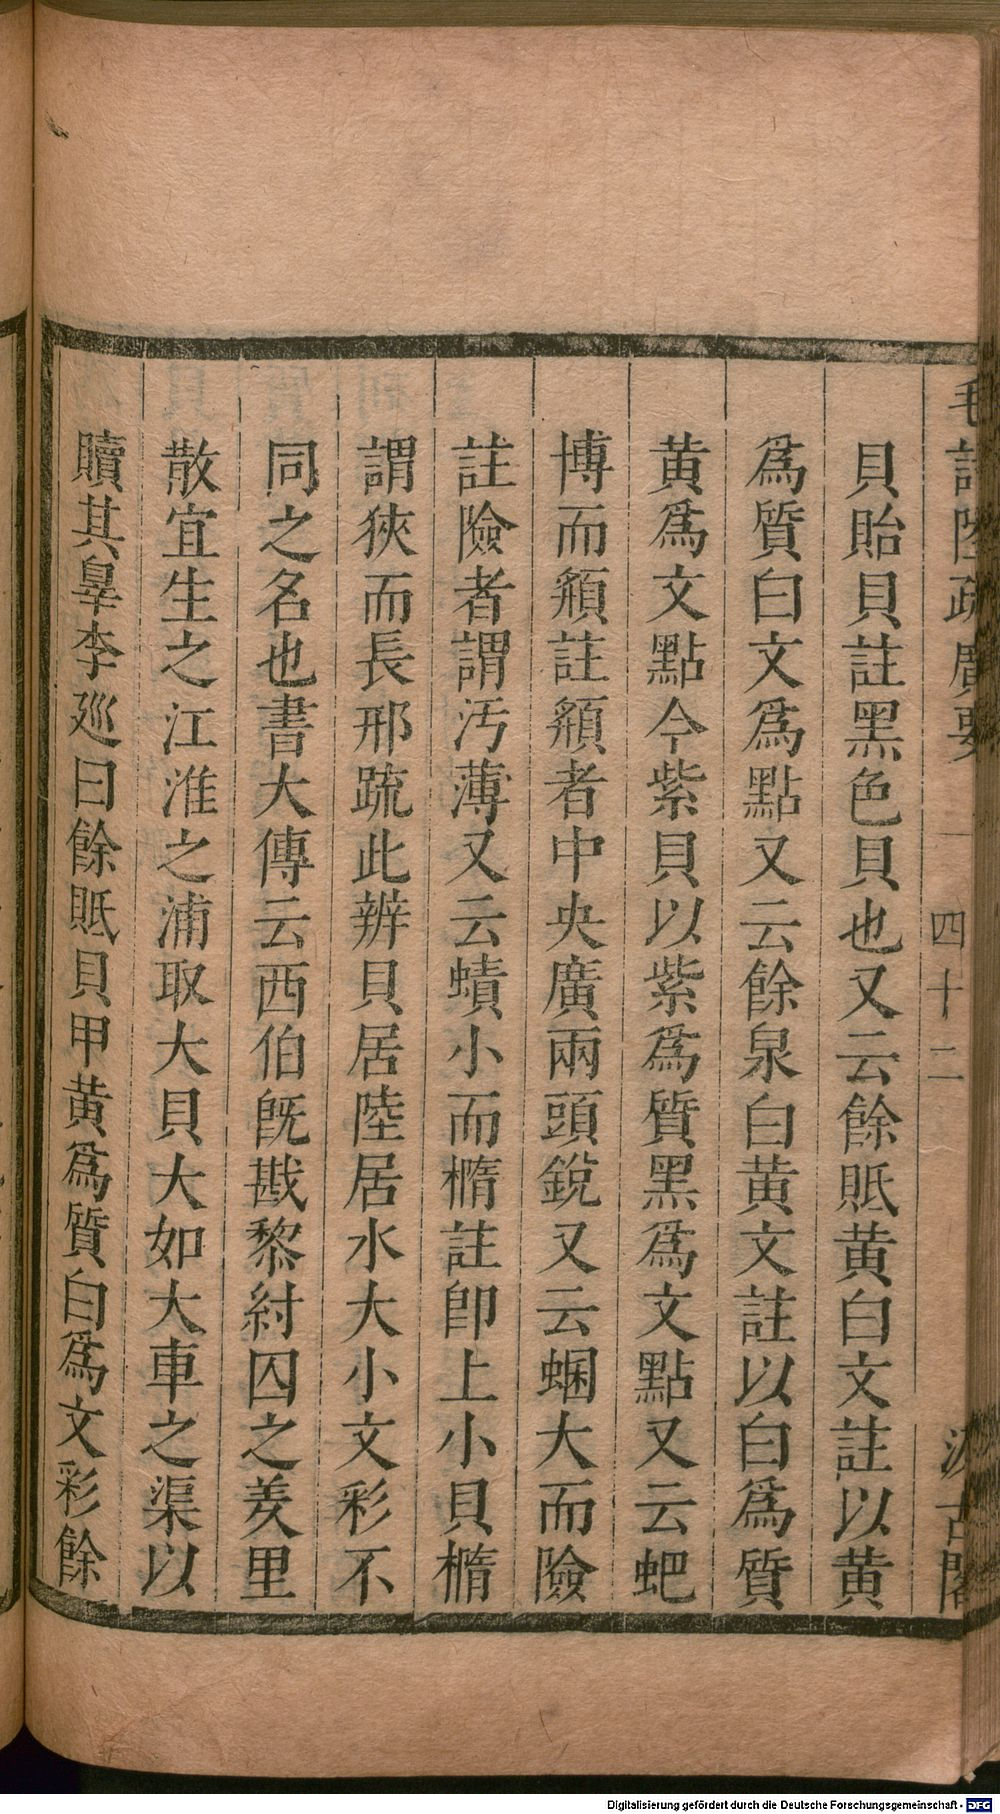 毛詩陸疏廣要
四十二
汲古閣
貝貽貝註黑色貝也又云餘貾黃白文註以黃
爲質白文爲點又云餘泉白黃文註以白爲質
黃爲文點今紫貝以紫爲質黑爲文點又云蚆
博而頯註頯者中央廣兩頭銳又云蜠大而險
註險者謂汚薄又云蟦小而橢註卽上小貝橢
謂狹而長邢疏此辨貝居陸居水大小文彩不
同之名也書大傳云西伯旣戡黎紂囚之羑里
散宜生之江淮之浦取大貝大如大車之渠以
贖其辠李廵曰餘貾貝甲黃爲質白爲文彩餘
Digitalisierung gefördert durch die Deutsche Forschungsgemeinschaft - DFG